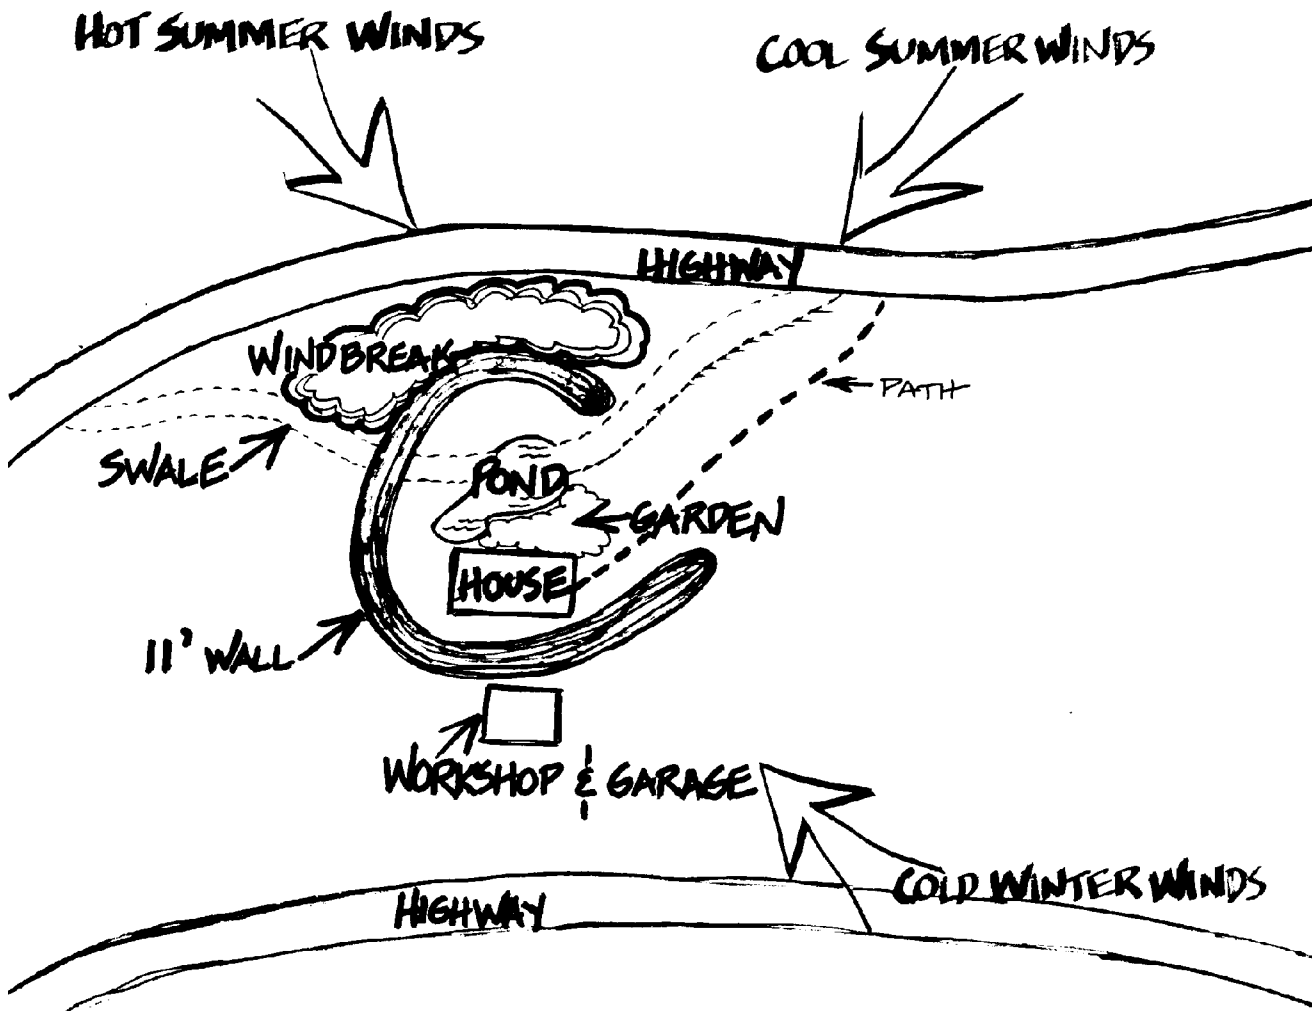 HOT SUMMER WINDS
COOL SUMMER WINDS
HIGHWAY
WINDBREAK
PATH
SWALE
POND
GARDEN
HOUSE
11' WALL
WORKSHOP & GARAGE
COLD WINTER WINDS
HIGHWAY